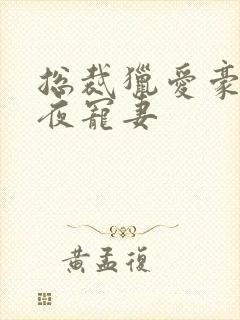 总裁獵愛豪
夜寵妻
黃孟復